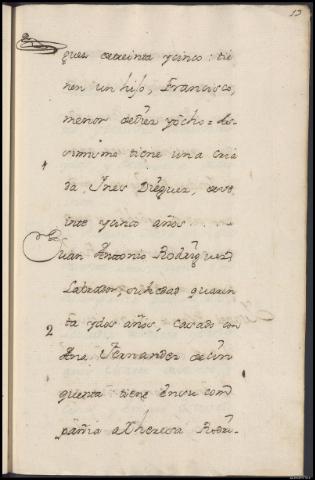 13
guez de treinta y cinco: tie
nen un hijo, Francisco,
menor de diez y ocho = As-
simismo tiene una cria
da, Ynes Dieguez, de ve
inte y cinco años
Juan Antonio Rodriguez,
Labrador, su hedad quaren
ta y dos años, casado con
2
Ana Fernandez de cin
quenta tiene en su com
pañia a Theresa Rodri-